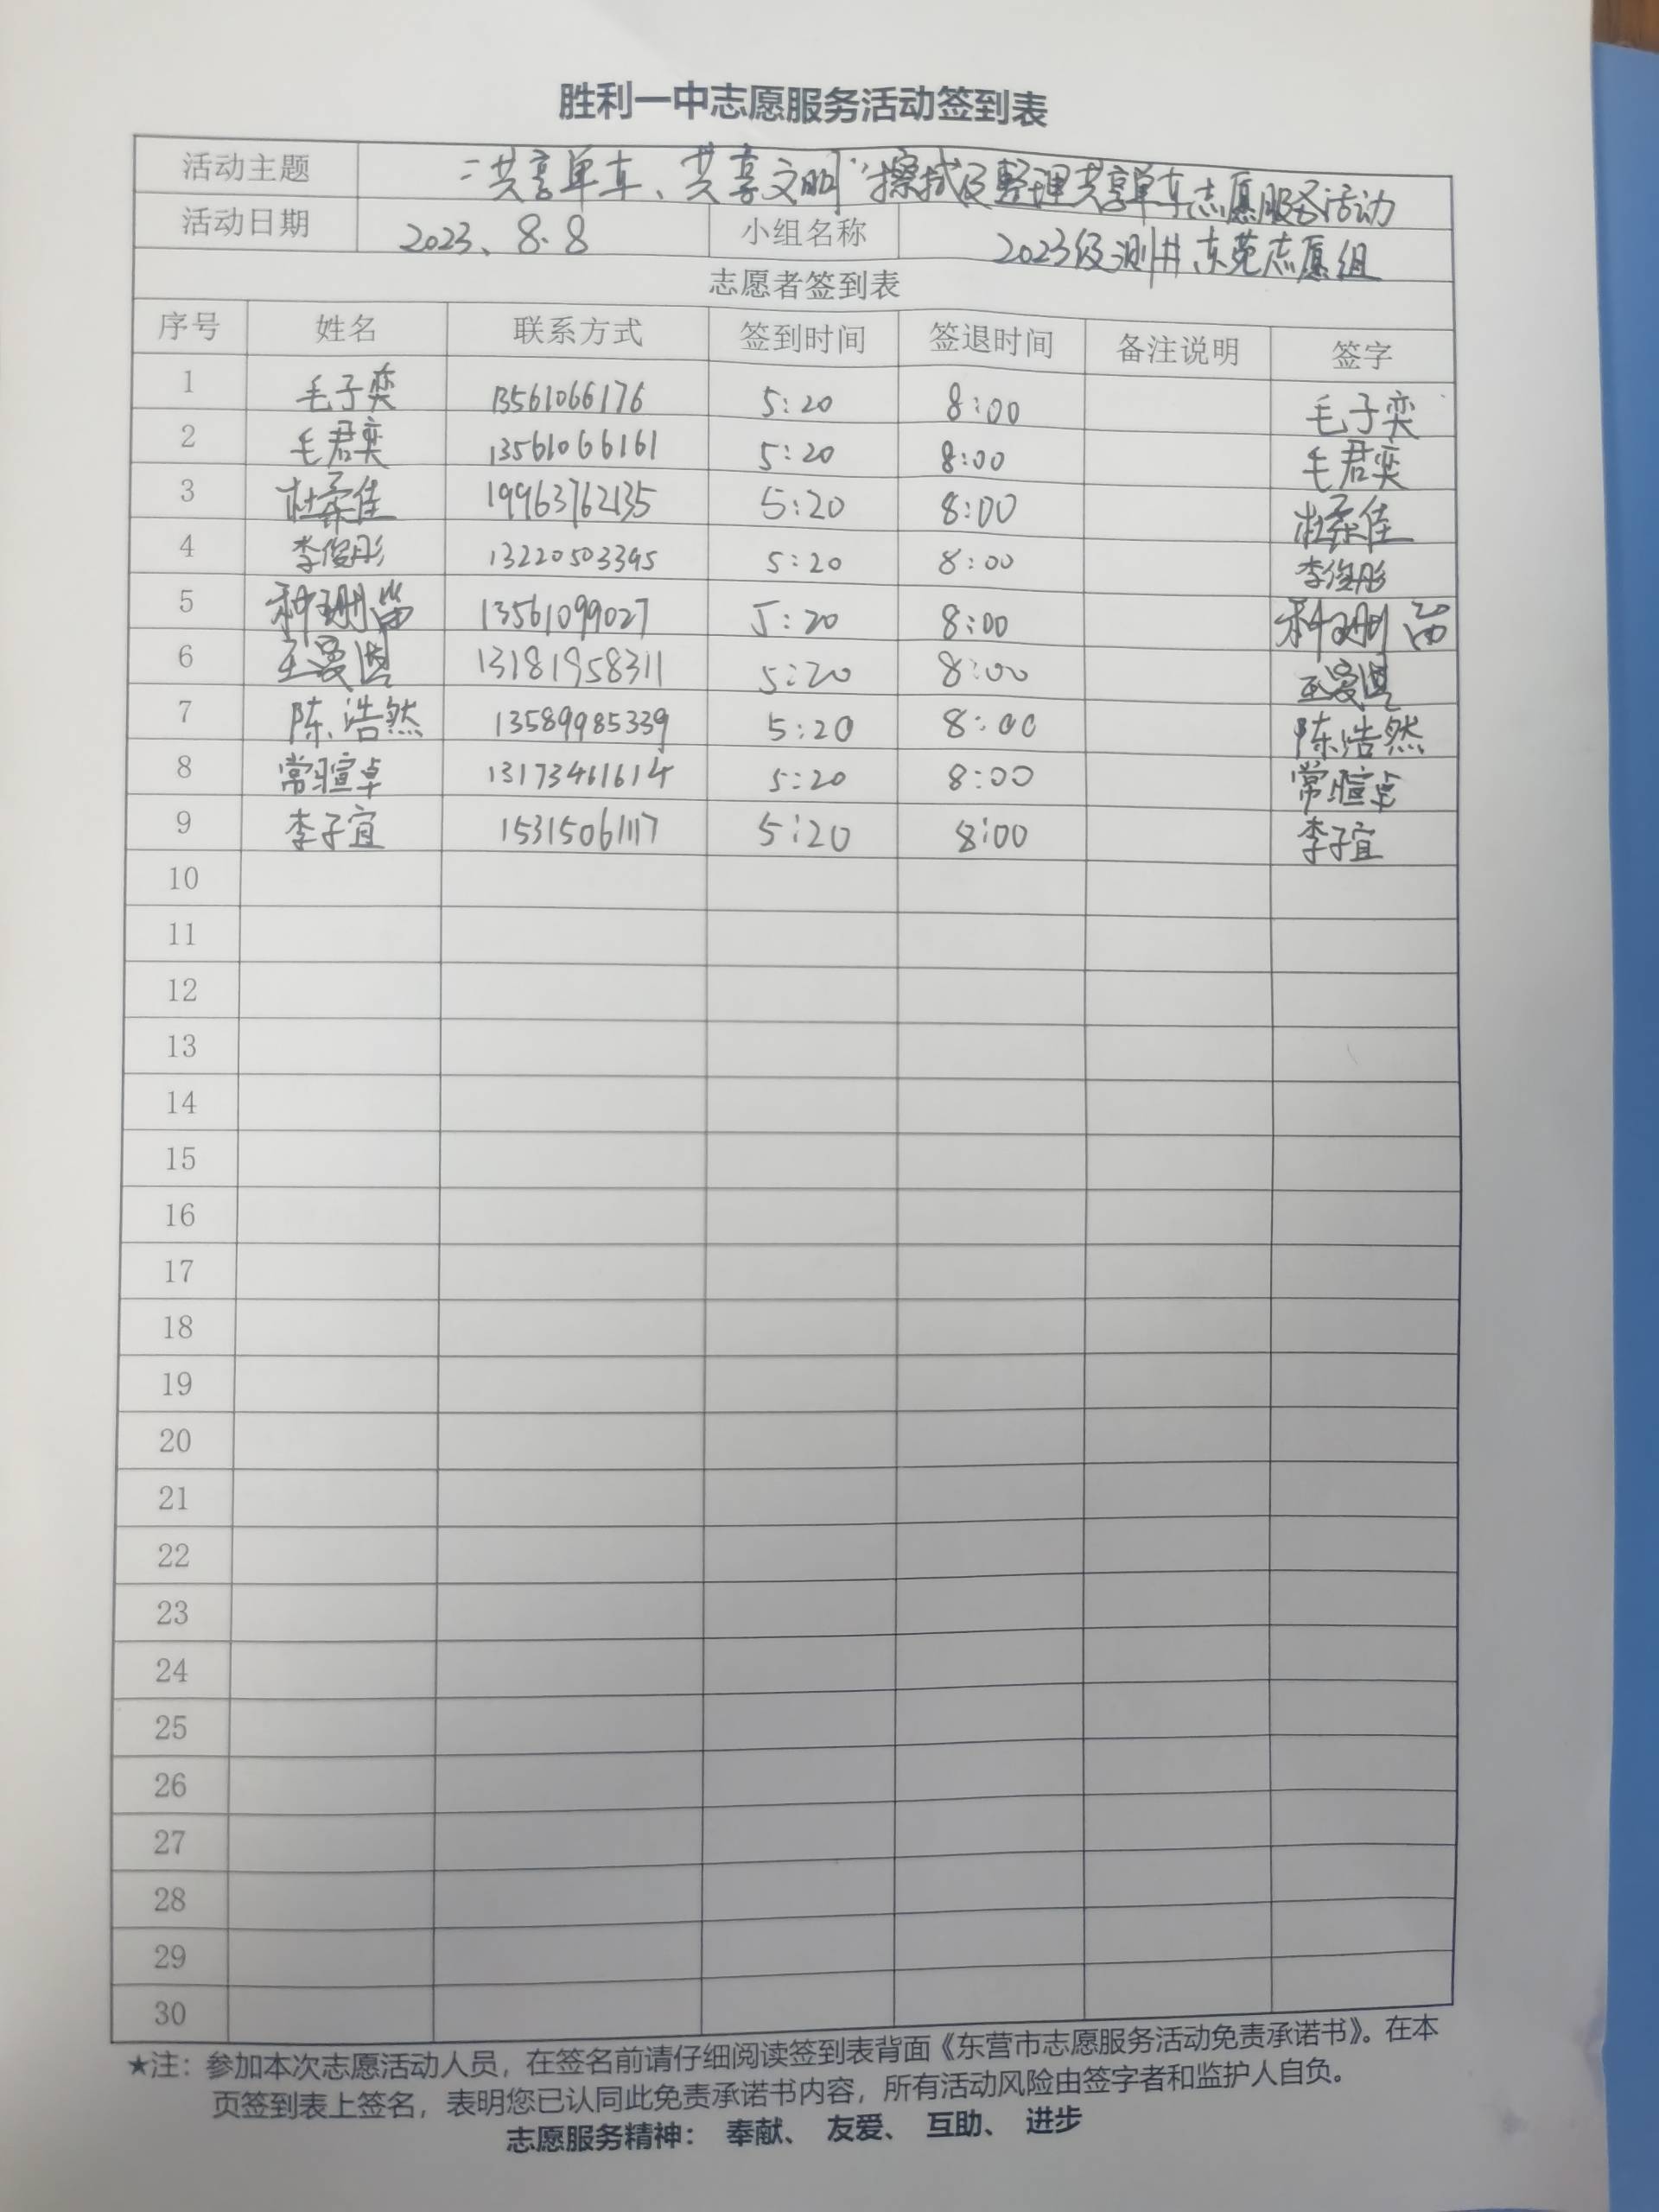 胜利一中志愿服务活动签到表
活动主题 “共享单车、共享文明”擦拭及整理共享单车志愿服务活动
活动日期 2023、8.8 小组名称 2023级测井东苑志愿组
志愿者签到表
序号 姓名 联系方式 签到时间 签退时间 备注说明 签字
1 毛子奕 13561066176 5:20 8:00 毛子奕
2 毛君奕 13561066161 5:20 8:00 毛君奕
3 杜柔佳 19963762135 5:20 8:00 杜柔佳
4 李俊彤 13220503395 5:20 8:00 李俊彤
5 种珊笛 13561099027 5:20 8:00 种珊笛
6 13181958311 5:20 8:00
7 陈浩然 13589985339 5:20 8:00 陈浩然
8 常暄卓 13173461614 5:20 8:00 常暄卓
9 李子宜 15315061117 5:20 8:00 李子宜
10
11
12
13
14
15
16
17
18
19
20
21
22
23
24
25
26
27
28
29
30
★注：参加本次志愿活动人员，在签名前请仔细阅读签到表背面《东营市志愿服务活动免责承诺书》。在本
页签到表上签名，表明您已认同此免责承诺书内容，所有活动风险由签字者和监护人自负。
志愿服务精神： 奉献、 友爱、 互助、 进步